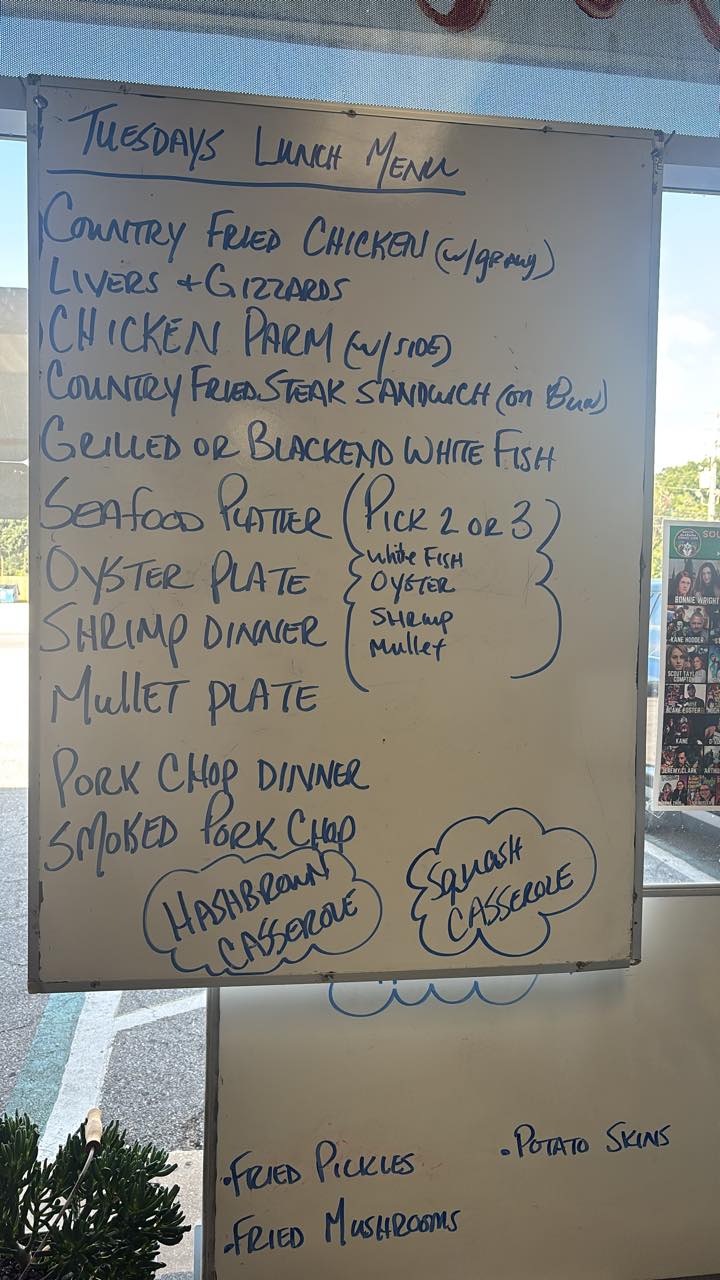 TUESDAYS LUNCH MENU
COUNTRY FRIED CHICKEN (w/gravy)
LIVERS + GIZZARDS
CHICKEN PARM (w/SIDE)
COUNTRY FRIED STEAK SANDWICH (on Bun)
GRILLED OR BLACKEND WHITE FISH
SEAFOOD PLATTER (PICK 2 OR 3)
White FISH
OYSTER
SHRIMP
Mullet
OYSTER PLATE
SHRIMP DINNER
MullET PLATE
PORK CHOP DINNER
SMOKED PORK CHOP
HASHBROWN
CASSEROLE
SQUASH
CASSEROLE
•FRIED PICKLES
•POTATO SKINS
•FRIED MUSHROOMS
SOU
BONNIE WRIGHT
KANE HODDER
SCOUT TAYLOR
COMPTON
KANE
JEREMY CLARK